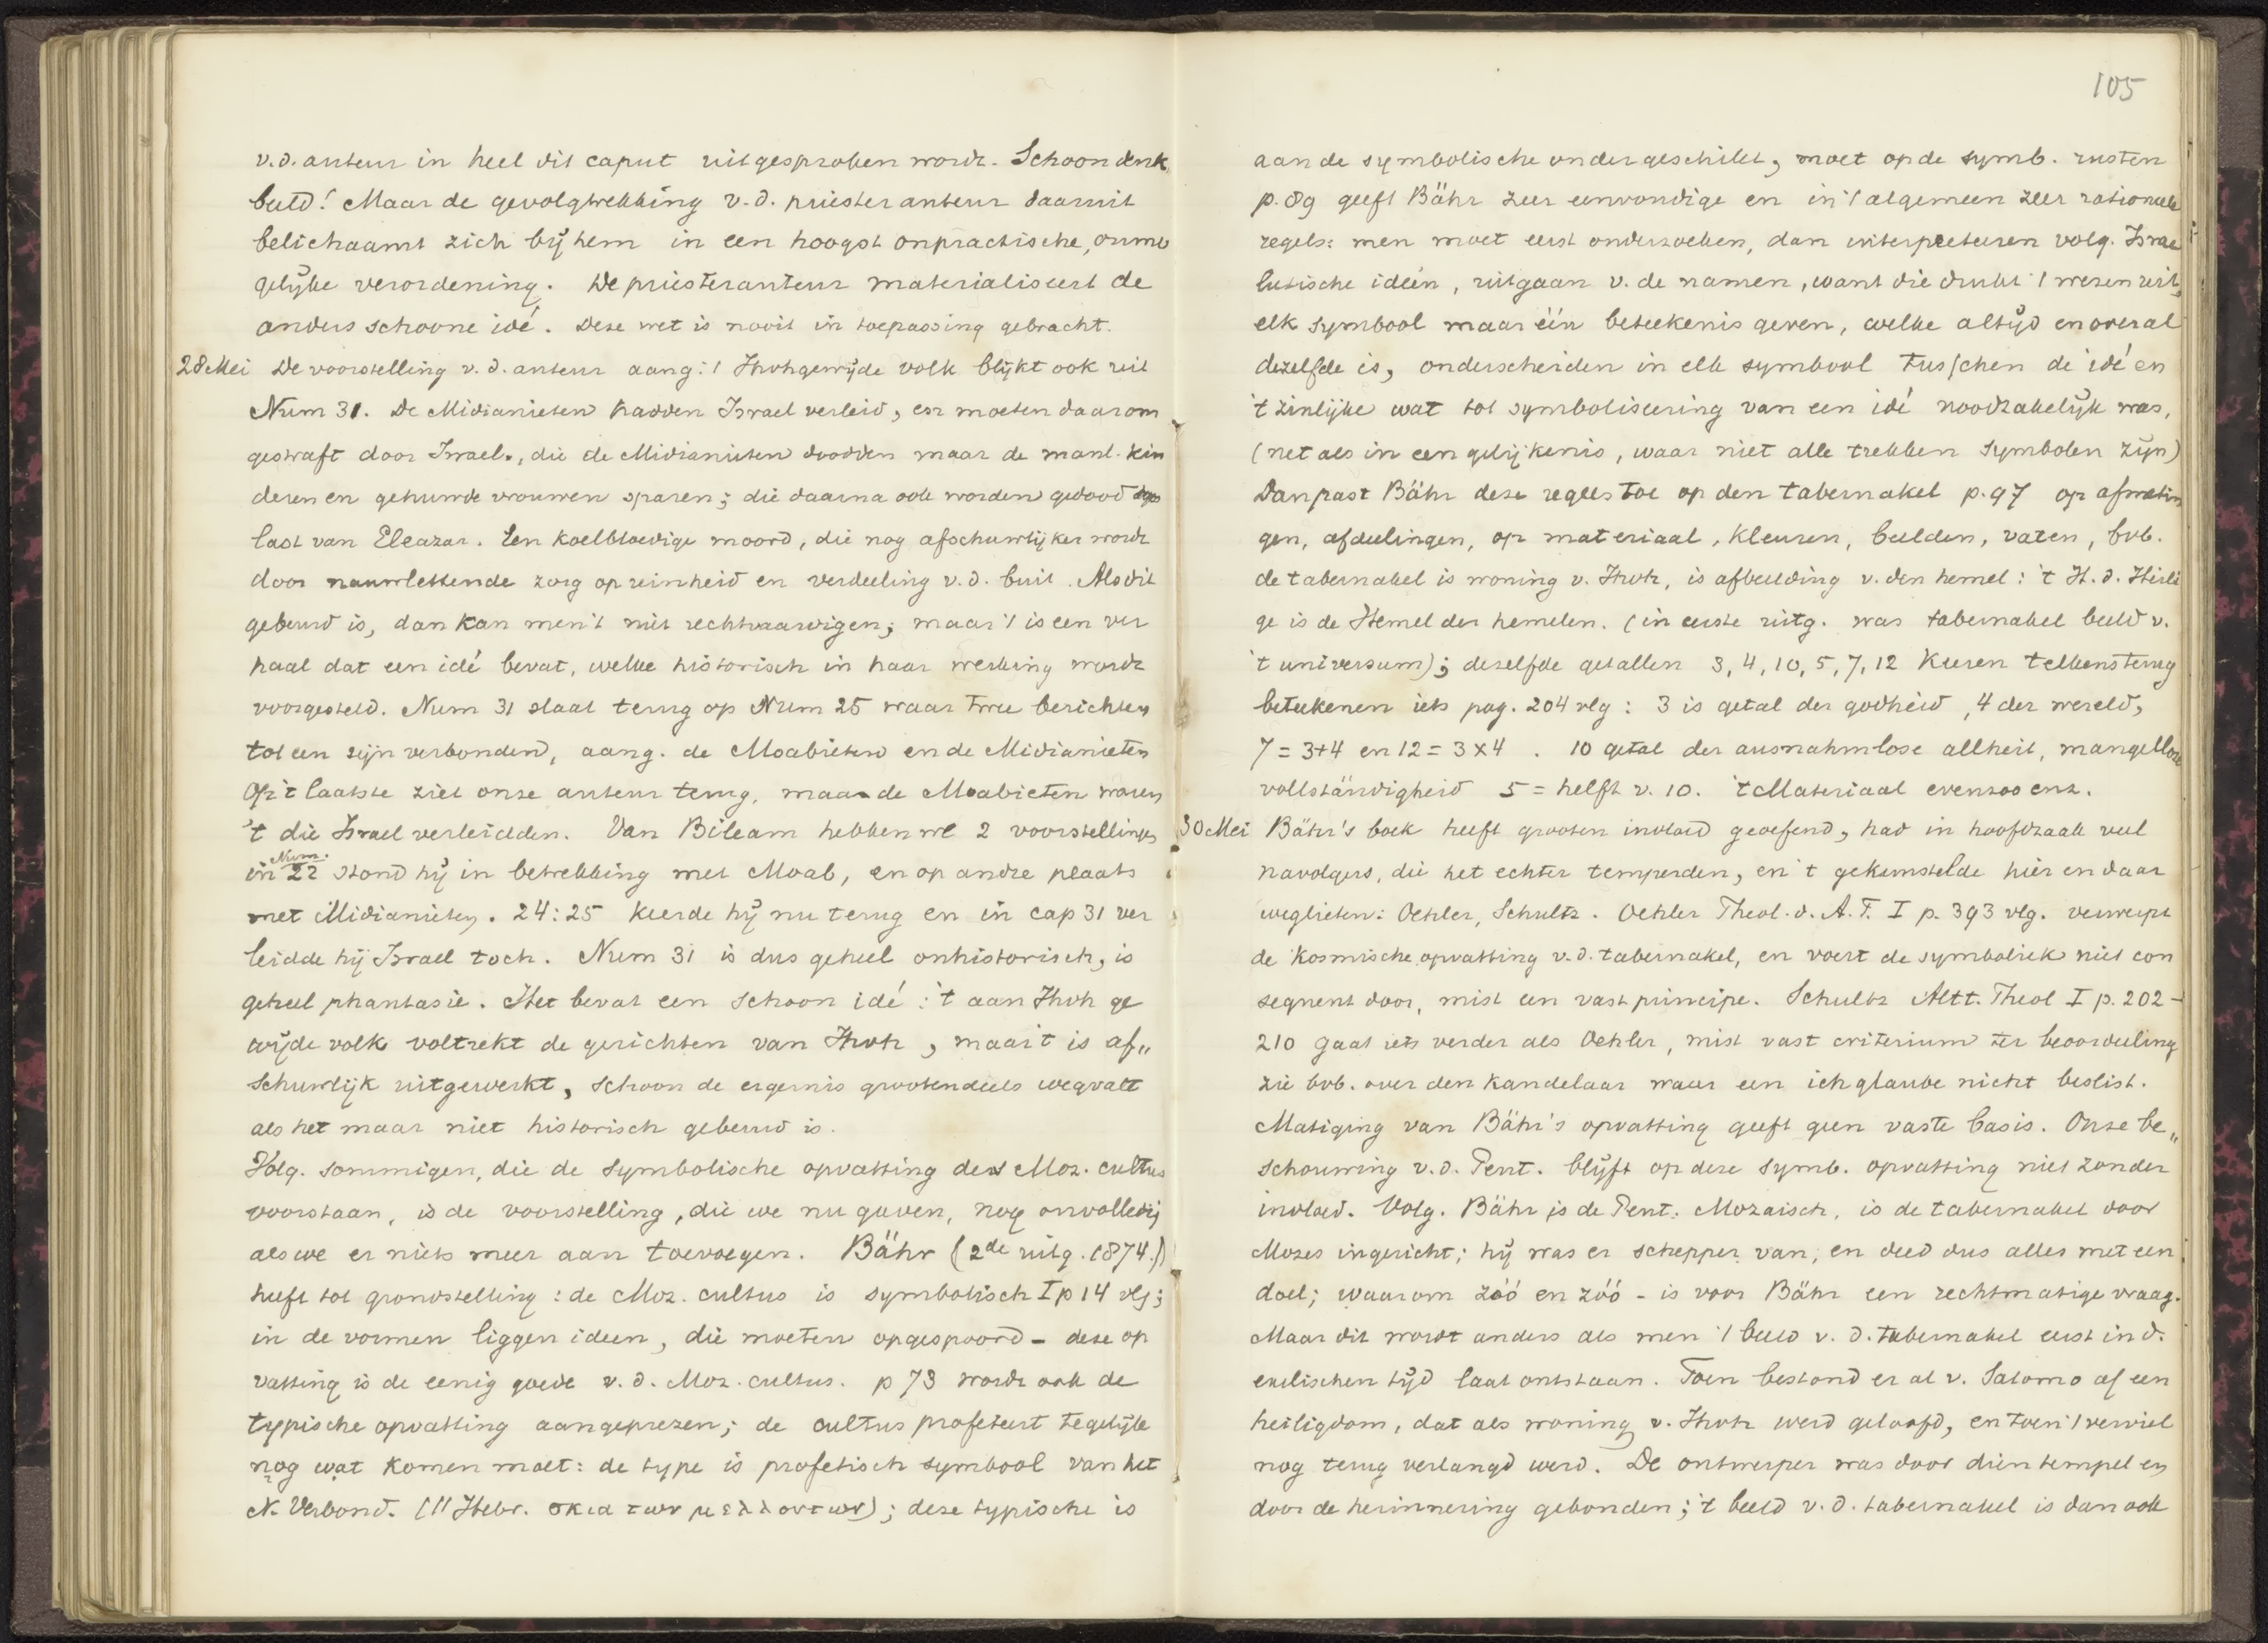 v.d. auteur in heel dit caput uitgesproken wordt. Schoon denk
beeld! Maar de gevolgtrekking v.d. priesterauteur daaruit
belichaamt zich bij hem in een hoogst onpractische, onmo
gelijke verordening. De priesterauteur materialiseert de
anders schoone idé. Deze wet is nooit in toepassing gebracht.
28 Mei De voorstelling v.d. auteur aang: 't Jhvhgewijde volk blijkt ook uit
Num 31. De Midianieten hadden Israel verleid, en moeten daarom
gestraft door Israel, die de Midianieten doodden maar de manl. kin
deren en gehuwde vrouwen sparen; die daarna ook worden gedood op
last van Eleazar. Een koelbloedige moord, die nog afschuwlijker wordt
door nauwlettende zorg op reinheid en verdeeling v.d. buit. Als dit
gebeurd is, dan kan men 't niet rechtvaardigen; maar 't is een ver
haal dat een idé bevat, welke historisch in haar werking wordt
voorgesteld. Num 31 slaat terug op Num 25 waar twee berichten
tot een zijn verbonden, aang. de Moabieten en de Midianieten
Op 't laatste ziet onze auteur terug, maar de Moabieten waren
't die Israel verleidden. Van Bileam hebben we 2 voorstellingen
in Num. 22 stond hij in betrekking met Moab, en op andre plaats
met Midianieten. 24:25 keerde hij nu terug en in cap 31 ver
leidde hij Israel toch. Num 31 is dus geheel onhistorisch, is
geheel phantasie. Het bevat een schoon idé: 't aan Jhvh ge
wijde volk voltrekt de gerichten van Jhvh, maar 't is af„
schuwlijk uitgewerkt, schoon de ergernis grootendeels wegvalt
als het maar niet historisch gebeurd is.
Volg. sommigen, die de symbolische opvatting des Moz. cultus
voorstaan, is de voorstelling, die we nu gaven, nog onvolledig
als we er niets meer aan toevoegen. Bähr (2de uitg. 1874.)
heeft tot grondstelling: de Moz. cultus is symbolisch I p 14 vlg;
in de vormen liggen ideen, die moeten opgespoord – deze op
vatting is de eenig goede v.d. Moz. cultus. p 73 wordt ook de
typische opvatting aangeprezen; de cultus profeteert tegelijk
nog wat komen moet: de type is profetisch symbool van het
N. Verbond. (11 Hebr. σκια των μελλοντων); deze typische is
105
aan de symbolische ondergeschikt, moet op de symb. rusten
p. 89 geeft Bähr zeer eenvoudige en in 't algemeen zeer rationeele
regels: men moet eerst onderzoeken, dan interpreteeren volg. Israe
lietische ideën, uitgaan v. de namen, want die drukt 't wezen uit,
elk symbool maar één beteekenis geven, welke altijd en overal
dezelfde is, onderscheiden in elk symbool tusschen de idé en
't zinlijke wat tot symboliseering van een idé noodzakelijk was,
(net als in een gelijkenis, waar niet alle trekken symbolen zijn)
Dan past Bähr deze regels toe op den tabernakel p. 97 op afmetin
gen, afdeelingen, op materiaal, kleuren, beelden, vaten, bvb.
de tabernakel is woning v. Jhvh, is afbeelding v. den hemel: 't H. d. Heili
ge is de Hemel der hemelen. (in eerste uitg. was tabernakel beeld v.
't universum); dezelfde getallen 3, 4, 10, 5, 7, 12 keeren telkens terug
beteekenen iets pag. 204 vlg: 3 is getal der godheid, 4 der wereld,
7 = 3+4 en 12 = 3 x 4. 10 getal der ausnahmlose allheit, mangellose
vollständigheid 5 = helft v. 10. 't Materiaal evenzoo enz.
30 Mei Bähr's boek heeft grooten invloed geoefend, had in hoofdzaak veel
navolgers, die het echter temperden, en 't gekunstelde hier en daar
weglieten: Oehler, Schultz. Oehler Theol. d. A.T. I p. 393 vlg. verwerpt
de kosmische opvatting v.d. tabernakel, en voert de symboliek niet con
sequent door, mist een vast principe. Schultz Altt. Theol I p. 202–
210 gaat iets verder als Oehler, mist vast criterium ter beoordeeling
zie bvb. over den kandelaar waar een ich glaube nicht beslist.
Matiging van Bähr's opvatting geeft geen vaste basis. Onze be„
schouwing v.d. Pent. blijft op deze symb. opvatting niet zonder
invloed. Volg. Bähr is de Pent. Mozaisch, is de tabernakel door
Mozes ingericht; hij was er schepper van, en deed dus alles met een
doel; waarom zóó en zóó – is voor Bähr een rechtmatige vraag.
Maar dit wordt anders als men 't beeld v.d. tabernakel eerst in d.
exilischen tijd laat ontstaan. Toen bestond er al v. Salomo af een
heiligdom, dat als woning v. Jhvh werd geloofd, en toen 't verviel
nog terug verlangd werd. De ontwerper was door dien tempel en
door de herinnering gebonden; 't beeld v.d. tabernakel is dan ook